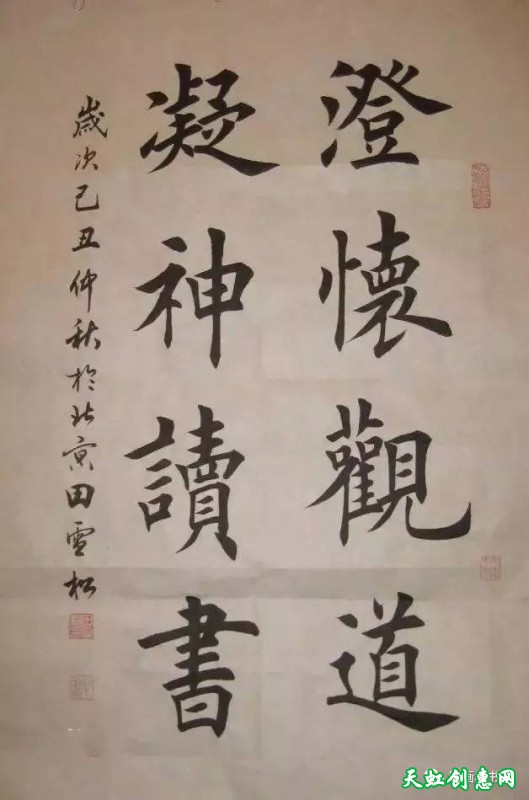 澄懷觀道
凝神讀書
歲次己丑仲秋於北京田雪松
天虹创意网